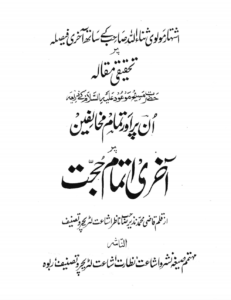 اشتہار مولوی ثناء اللہ صاحب کے ساتھ آخری فیصلہ
پر
تحقیقی مقالہ
حضرت مسیح موعود علیہ السلام کے ذریعہ
اُن پر اور تمام مخالفین
پر
آخری اتمام حجت
از قلم قاضی محمد نذیر صاحب ناظر اشاعت لٹریچر و تصنیف
الناشر
مہتمم صیغہ نشر و اشاعت نظارت اشاعت لٹریچر و تصنیف ربوہ